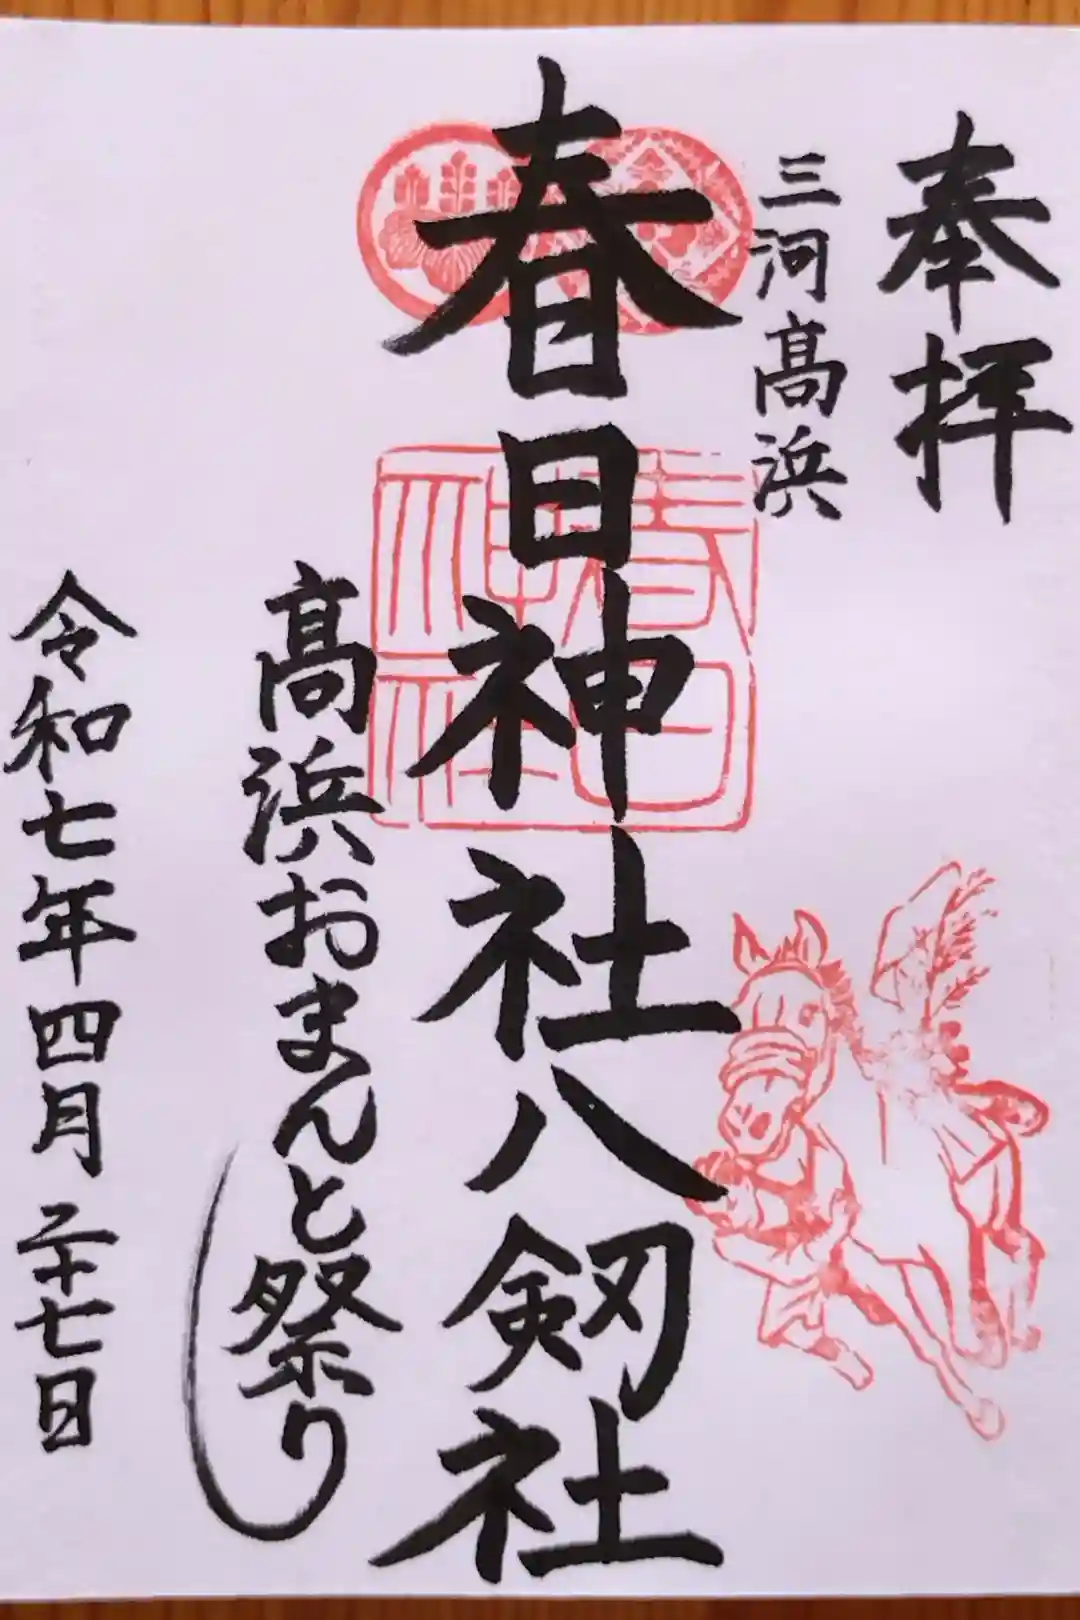 奉拝
三河髙浜
春日神社八剱社
春日神社
髙浜おまんと祭り
令和七年四月二十七日